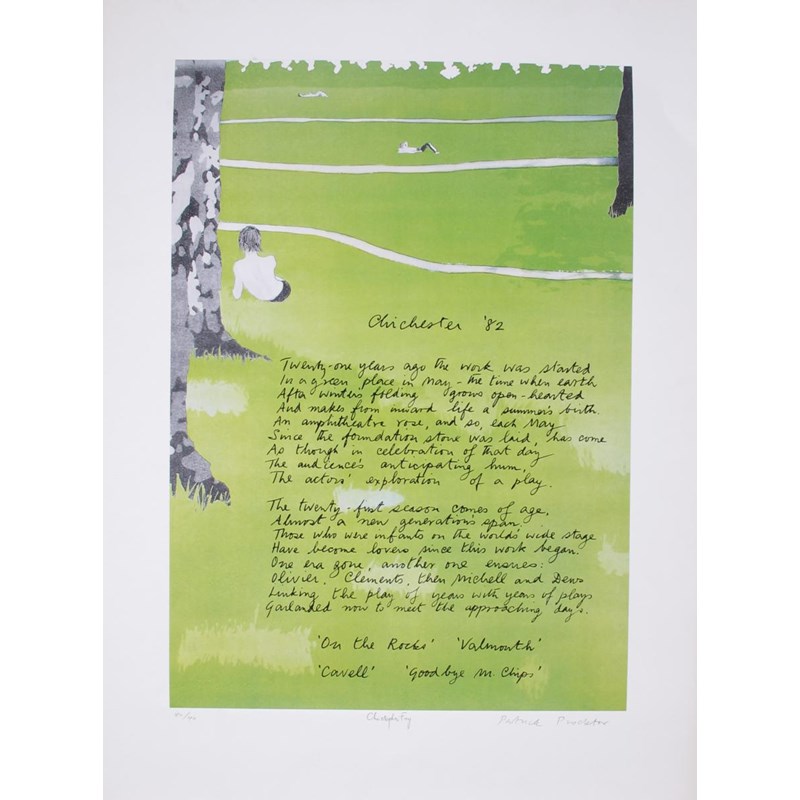 Chichester '82
Twenty-one years ago the work was started
In a green place in May - the time when earth
After winter's folding grows open-hearted
And makes from inward life a summer's birth.
An amphitheatre rose, and so, each May
Since the foundation stone was laid, has come
As though in celebration of that day
The audience's anticipating hum,
The actors' exploration of a play.
The twenty-first season comes of age,
Almost a new generation's span.
Those who were infants on the world's wide stage
Have become lovers since this work began.
One era gone, another one ensues:
Olivier, Clements, then Michell and Dews
Linking the play of years with years of plays
Garlanded now to meet the approaching days.
'On the Rocks' 'Valmouth'
'Cavell' 'Goodbye Mr. Chips'
Christopher Fry Patrick Procktor